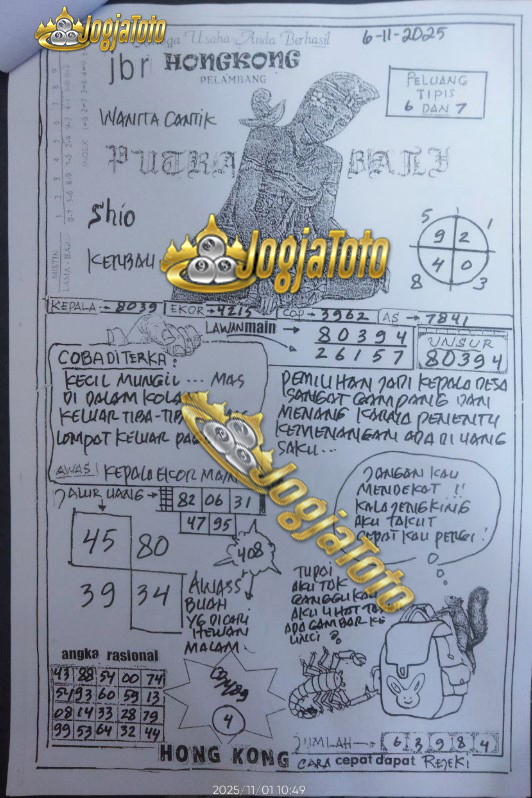 JogjaToto
Usaha Anda Berhasil
6-11-2025
jbr HONGKONG
PELAMBANG
PELUANG
TIPIS
6 DAN 7
WANITA CANTIK
PUTRA BALI
Shio
KERBAU
5 1
9 2
4 0
8 3
JogjaToto
KEPALA → 8039 EKOR → 4215 COP → 3962 AS → 7841
LAWAN main → 80394
26157
UNSUR
80394
COBA DITERKA:
KECIL MUNGIL ... MAS
DI DALAM KOLA
KELUAR TIBA-TIB
LOMPAT KELUAR
AWAS! KEPALA EKOR MAIN
PEMILIHAN JADI KEPALA DESA
SANGAT GAMPANG DAN
MENANG KARNA PENENTU
KEMENANGAN ADA DI UANG
SAKU...
JALUR UANG → 82 06 31
47 95
JogjaToto
JANGAN KAU
MENDEKAT !!
KALAJENGKING
AKU TAKUT
CEPAT KAU PERGI!
45 80
39 34
408
AWASS
BUAH
YG DICARI
HEWAN
MALAM
TUPAI
AKU TAK
GANGGU KAU
AKU LIHAT TAS
ADA GAMBAR KE
LINCI ?
angka rasional
43 88 54 00 74
54 93 60 59 13
08 14 33 28 79
99 53 64 32 44
4
JUMLAH → 6 3 9 8 4
HONG KONG
CARA cepat dapat REJEKI
2025/11/01 10:49